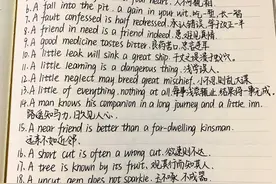 6. A fall into the pit, a gain in your wit. 吃一堑,长一智
7. A fault confessed is half redressed. 承认错误,等于改正一半
8. A friend in need is a friend indeed. 患难见真情
9. A good medicine tastes bitter. 良药苦口
10. A little leak will sink a great ship.
11. A little learning is a dangerous thing. 浅学误人
12. A little neglect may breed great mischief. 小不忍则乱大谋
13. A little of everything, nothing at all.
14. A man knows his companion in a long journey and a little inn.
路遥知马力,日久见人心.
15. A near friend is better than a far-dwelling kinsman.
远亲不如近邻.
16. A short cut is often a wrong cut. 欲速则不达
17. A tree is known by its fruit.
18. A uncut gem does not sparkle. 玉不琢 不成器